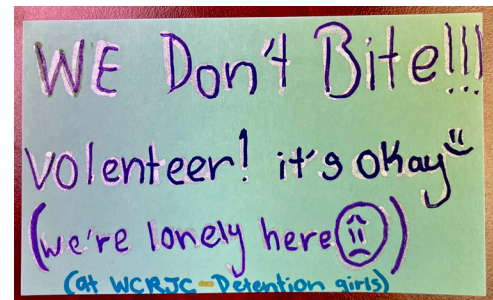 WE Don't Bite!!!
Volenteer! it's okay
(we're lonely here)
(at WCRJC - Detention girls)